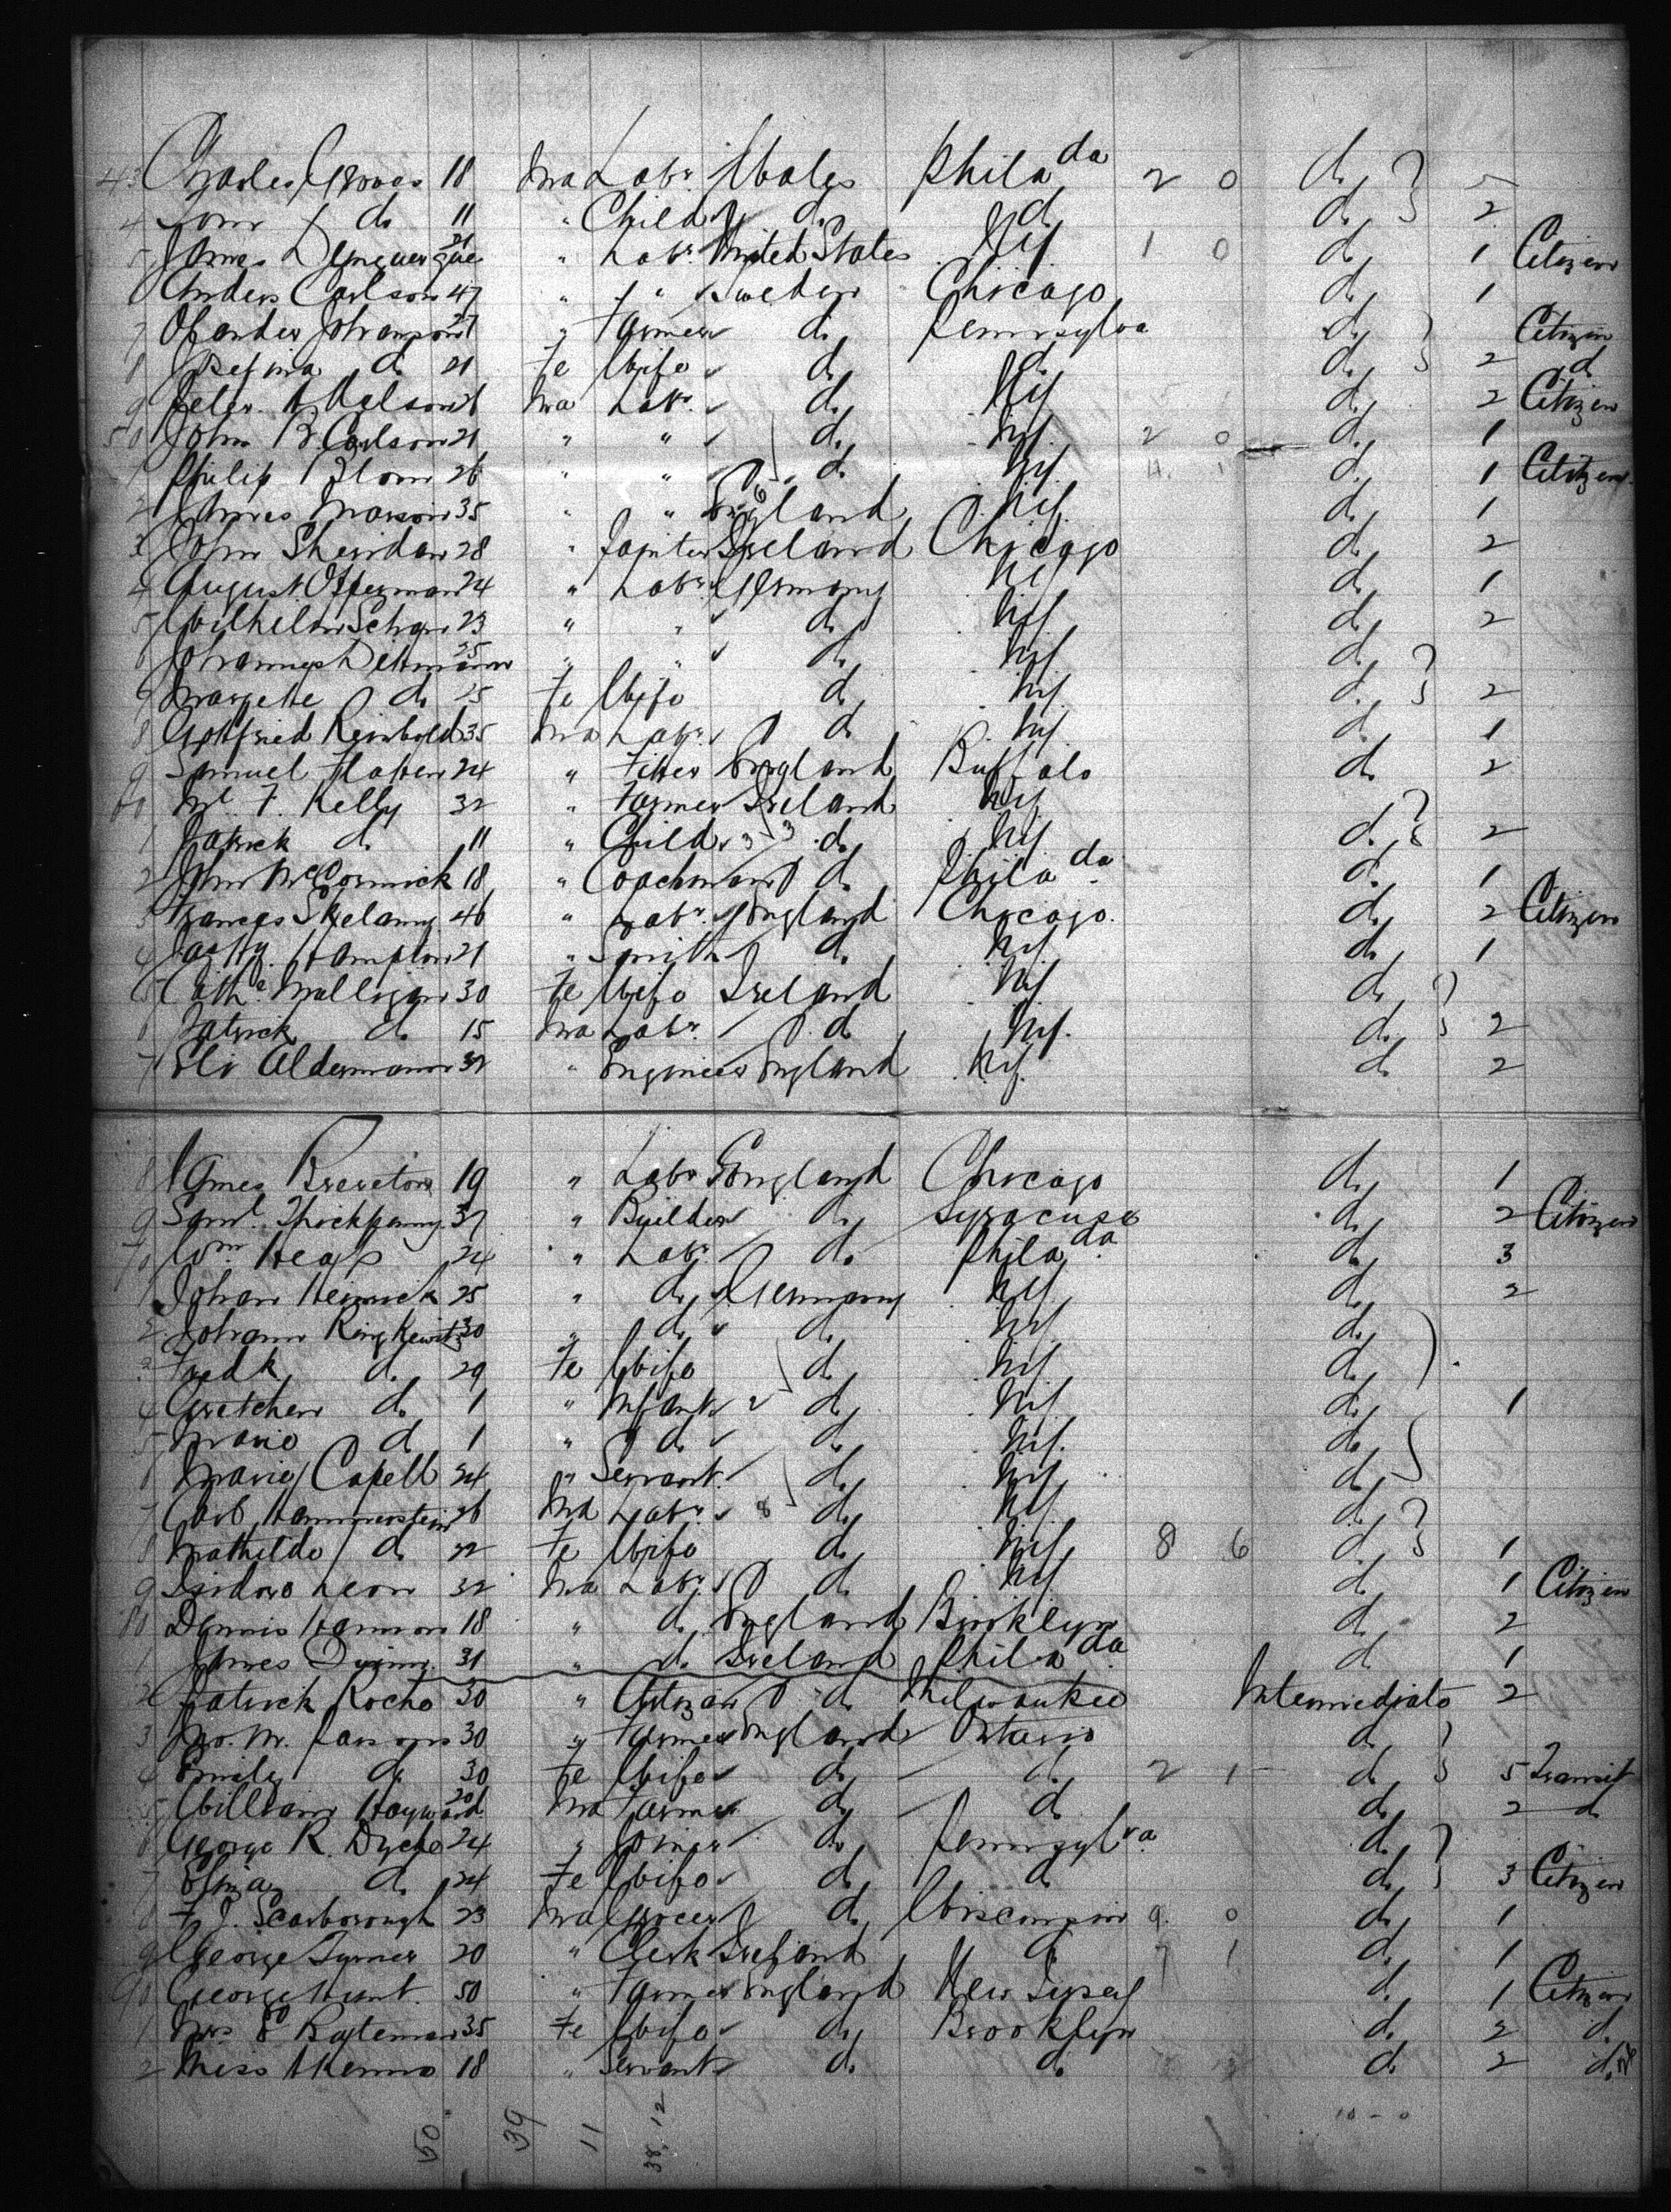 43 Charles Groves 18 Ma Labr. Wales Phila da 2 0 do
4 do 11 " Child do do do 2
5 James 21 " Labr. United States NY 1 0 do 1 Citizen
6 Anders Carlson 47 " " Sweden Chicago do 1
7 Johanson 27 " Farmer do Pennsylva do Citizen
8 Josefina do 21 Fe Wife do do do 2 do
9 Peter A Nelson Ma Labr. do NY do 2 Citizen
50 John B. Carlson 21 " " do NY 2 0 do 1
1 Philip 26 " " do NY do 1 Citizen
2 James Mason 35 " " England NY do 1
3 John Sheridan 28 " Ireland Chicago do 2
4 August Offerman 24 " Labr. Germany NY do 1
5 Wilhelm 23 " " do NY do 2
6 Johannes 25 " " do NY do
Margethe do 25 Fe Wife do NY do 2
8 Gottfried Reinbold 35 Ma Labr. do NY do 1
9 Samuel 24 " Fitter England Buffalo do 2
60 F. Kelly 32 " Farmer Ireland NY
1 Patrick do 11 " Child do NY do 2
2 John McCormick 18 " Coachman do Phila da do 1
3 46 " Labr. England Chicago do 2 Citizen
4 Hampton 21 " Smith do NY do 1
5 Cathe Mulligan 30 Fe Wife Ireland NY do
6 Patrick do 15 Ma Labr. do NY do 2
7 Eli Alderman 32 " Engineer England NY do 2
8 James Brereton 19 " Labr England Chicago do 1
9 Saml. Thickpenny 37 " Builder do Syracuse do 2 Citizen
70 Wm Heap 24 " Labr. do Phila da do 3
1 Johan 25 " do Germany NY do 2
2 Johann 30 " do do NY do
3 Fredk do 29 Fe Wife do NY do
4 Gretchen do 1 " Infant do NY do 1
5 Marie do 1 " do do NY do
6 Marie Capell 24 " Servant do NY do
7 Carl Hammerstein 26 Ma Labr. do NY do
8 Mathilde do 22 Fe Wife do NY 8 6 do 1
9 Isidore Leon 32 Ma Labr. do NY do 1 Citizen
80 Dennis Hannon 18 " do England Brooklyn do 2
1 James 31 " do Ireland Phila da do 1
2 Patrick Roche 30 " Artizan do Milwaukee Intermediate 2
3 Jno. M. Parsons 30 " Farmer England Ontario do
4 Emily do 30 Fe Wife do do 2 1 do 5 Transit
5 William Hayward 20 Ma Farmer do do do 2 do
6 George R. Dyche 24 " Joiner do Pennsylva do
7 Eliza do 24 Fe Wife do do do 3 Citizen
8 F. J. Scarborough 23 Ma Grocer do Wisconsin 9 0 do 1
9 George Turner 20 " Clerk Ireland do 7 1 do 1
90 George Hunt 50 " Farmer England New Jersey do 1 Citizen
1 Mrs E Bateman 35 Fe Wife do Brooklyn do 2 do
2 Miss 18 " Servant do do do 2 do
50 39 11 38 12 10 - 0